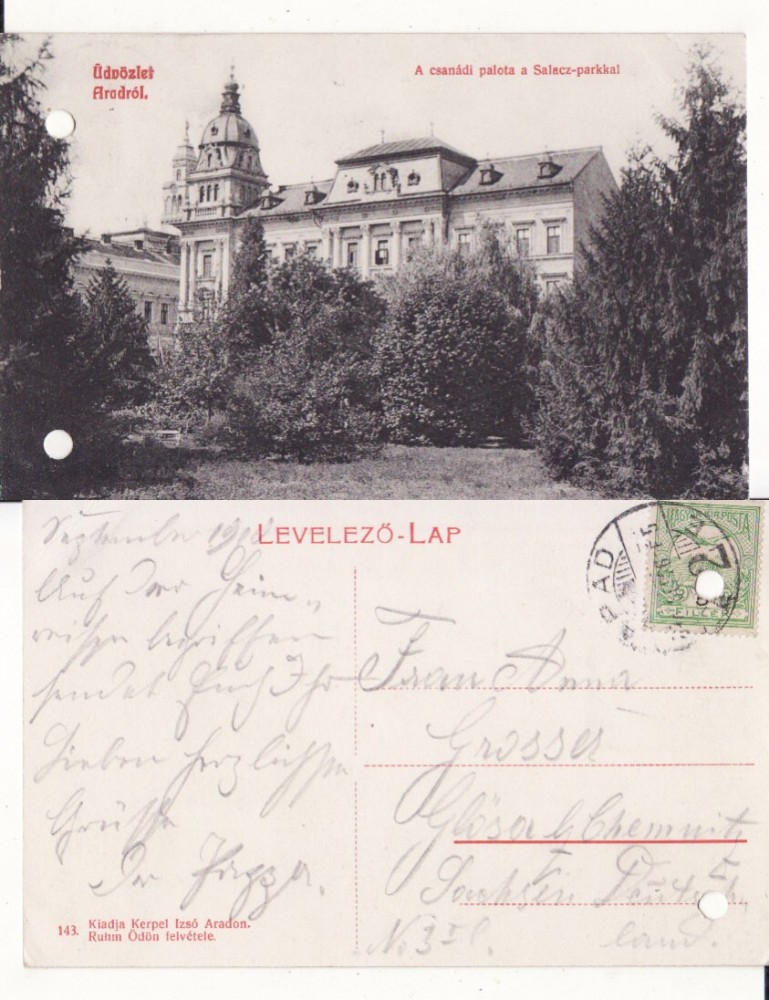 Üdvözlet
Aradról.
A csanádi palota a Salacz-parkkal
LEVELEZŐ-LAP
September
Auf der Heim-
reise begriffen
sendet Euch Ihr
Lieben herzlichste
Grüsse
Frau Anna
Grosser
Glösa b/ Chemnitz
Sachsen Deutsch-
land.
MAGYAR KIR. POSTA
FILLÉR
ARAD
143. Kiadja Kerpel Izsó Aradon.
Ruhm Ödön felvétele.